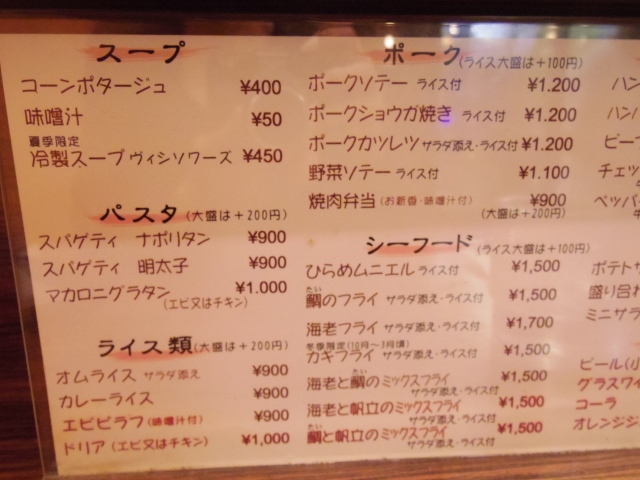 スープ
コーンポタージュ ¥400
味噌汁 ¥50
夏季限定
冷製スープ ヴィシソワーズ ¥450
パスタ (大盛は+200円)
スパゲティ ナポリタン ¥900
スパゲティ 明太子 ¥900
マカロニグラタン (エビ又はチキン) ¥1.000
ライス類 (大盛は+200円)
オムライス サラダ添え ¥900
カレーライス ¥900
エビピラフ (味噌汁付) ¥900
ドリア (エビ又はチキン) ¥1,000
ポーク (ライス大盛は+100円)
ポークソテー ライス付 ¥1.200
ポークショウガ焼き ライス付 ¥1.200
ポークカツレツ サラダ添え・ライス付 ¥1.200
野菜ソテー ライス付 ¥1.100
焼肉弁当 (お新香・味噌汁付) ¥900
(大盛は+200円)
シーフード (ライス大盛は+100円)
ひらめムニエル ライス付 ¥1,500
たい
鯛のフライ サラダ添え・ライス付 ¥1,500
海老フライ サラダ添え・ライス付 ¥1,700
冬季限定 (10月〜3月頃)
カキフライ サラダ添え・ライス付 ¥1,500
たい
海老と鯛のミックスフライ サラダ添え・ライス付 ¥1,500
海老と帆立のミックスフライ サラダ添え・ライス付 ¥1,500
たい
鯛と帆立のミックスフライ サラダ添え・ライス付 ¥1,500
ハン
ハン
ビーフ
チェッ
ペッパ
ポテトサ
盛り合わ
ミニサラ
ビール(小
グラスワイ
コーラ
オレンジジ